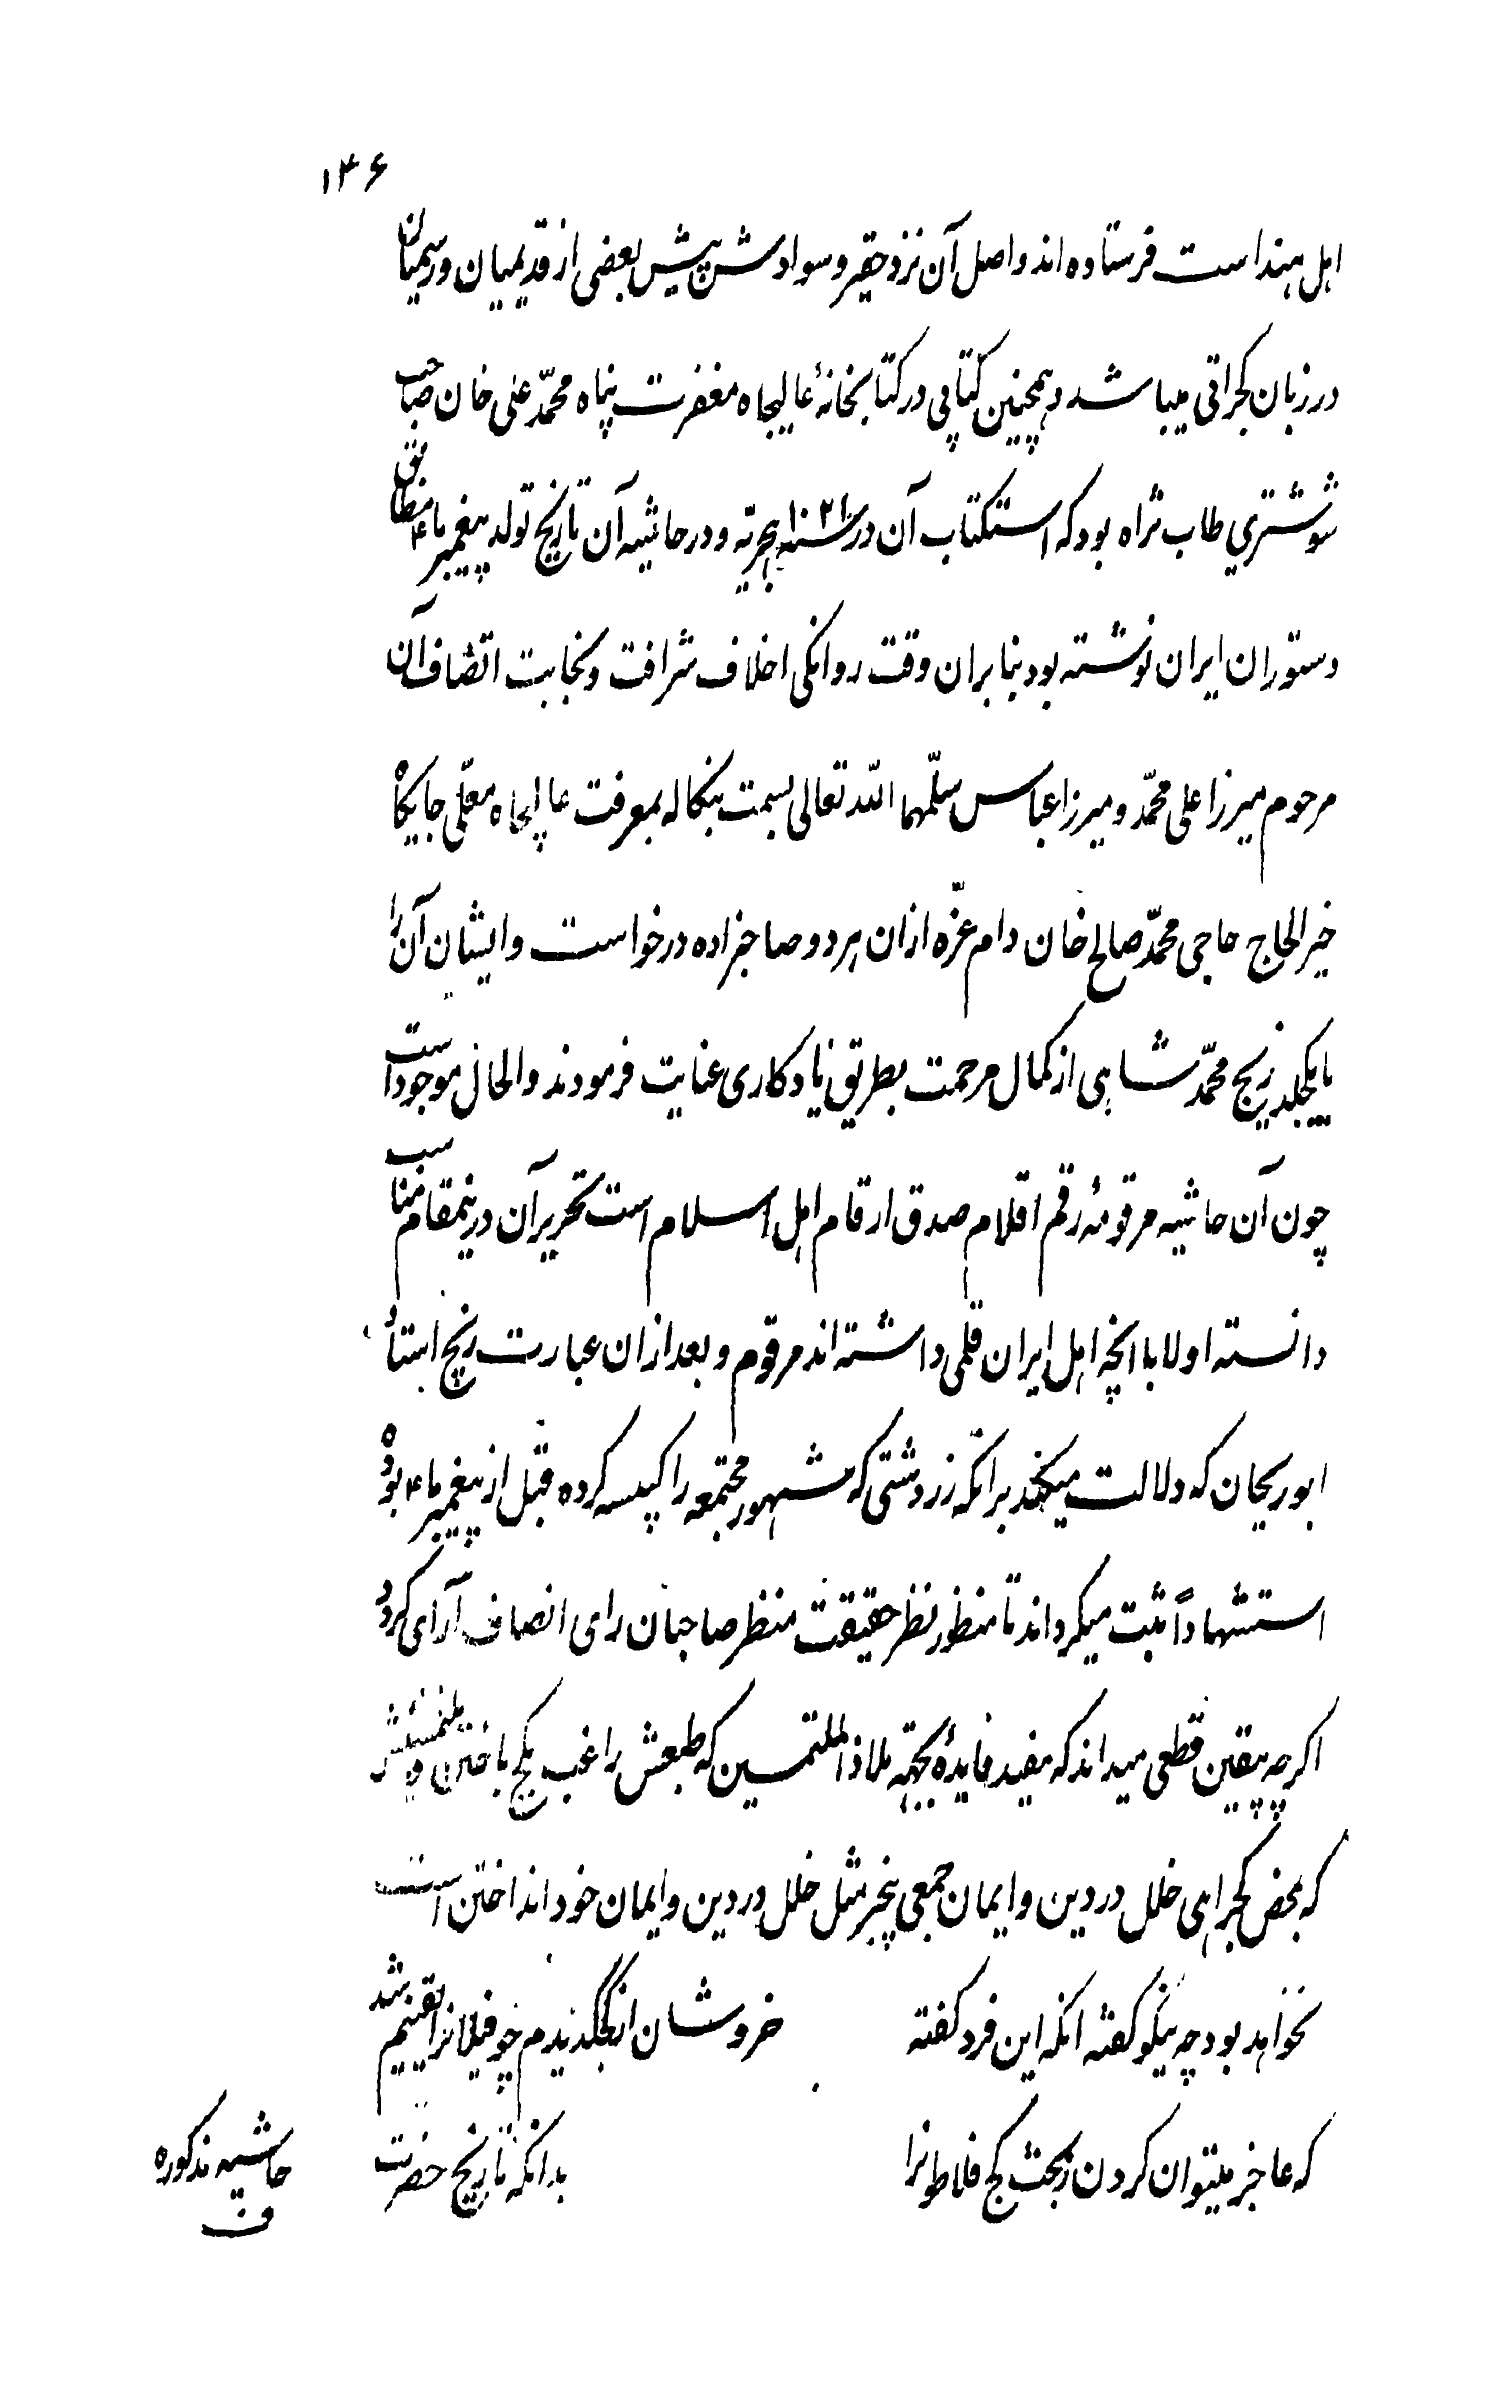 ۱۴۶
اهل هند است فرستاده اند و اصل آن نزد حقیر و سوادش پیش بعضی از قدیمیان و رسمیان
در زبان کجراتی میباشد و همچنین کتابی در کتابخانهٔ عالیجاه مغفرت پناه محمّد علی خان صاحب
شوشتری طاب ثراه بود که استکتاب آن در سنه ۱۰۲۱ هجریّه و در حاشیه آن تاریخ تولد پیغمبر ما ۴ مطابق
دستوران ایران نوشته بود بنابران وقت روانکی اخلاف شرافت و نجابت اتصاف آن
مرحوم میرزا علی محمّد و میرزا عباس سلّمهما اللّه تعالی بسمت بنکاله بمعرفت عالیجاه معلّی جایکاه
خیر الحاج حاجی محمّد صالح خان دام عزّه ازان هر دو صاحبزاده درخواست و ایشان آن را
با یکجلد زیج محمّد شاهی از کمال مرحمت بطریق یادکاری عنایت فرمودند و الحال موجود است
چون آن حاشیه مرقومهٔ رقم اقلام صدق ارقام اهل اسلام است تحریر آن درینمقام مناسب
دانسته اولا با انچه اهل ایران قلمی داشته اند مرقوم و بعد ازان عبارت زیج استاد
ابوریحان که دلالت میکند برانکه زردشتی که مشهور مجتمعه را کبیسه کرده قبل از پیغمبر ما ۴ بوده
استشهاداً ثبت میکرداند تا منظور نظر حقیقت منظر صاحبان رای انصاف آرای کردد
اکرچه بیقین قطعی میداند که مفید فایدهٔ بجهته ملاذ الملتمسین که طبعش راغب بکج باختن و
که بمحض کجراهی خلل در دین و ایمان جمعی بیخبر مثل خلل در دین و ایمان خود انداختن است
نخواهد بود چه نیکو کفته انکه این فرد کفته خروشان از کجکدیدم چو فیلانرا یقینم شد
که عاجز میتوان کردن ببحث کج فلاطونرا بدانکه تاریخ حضرت
حاشیه مذکوره